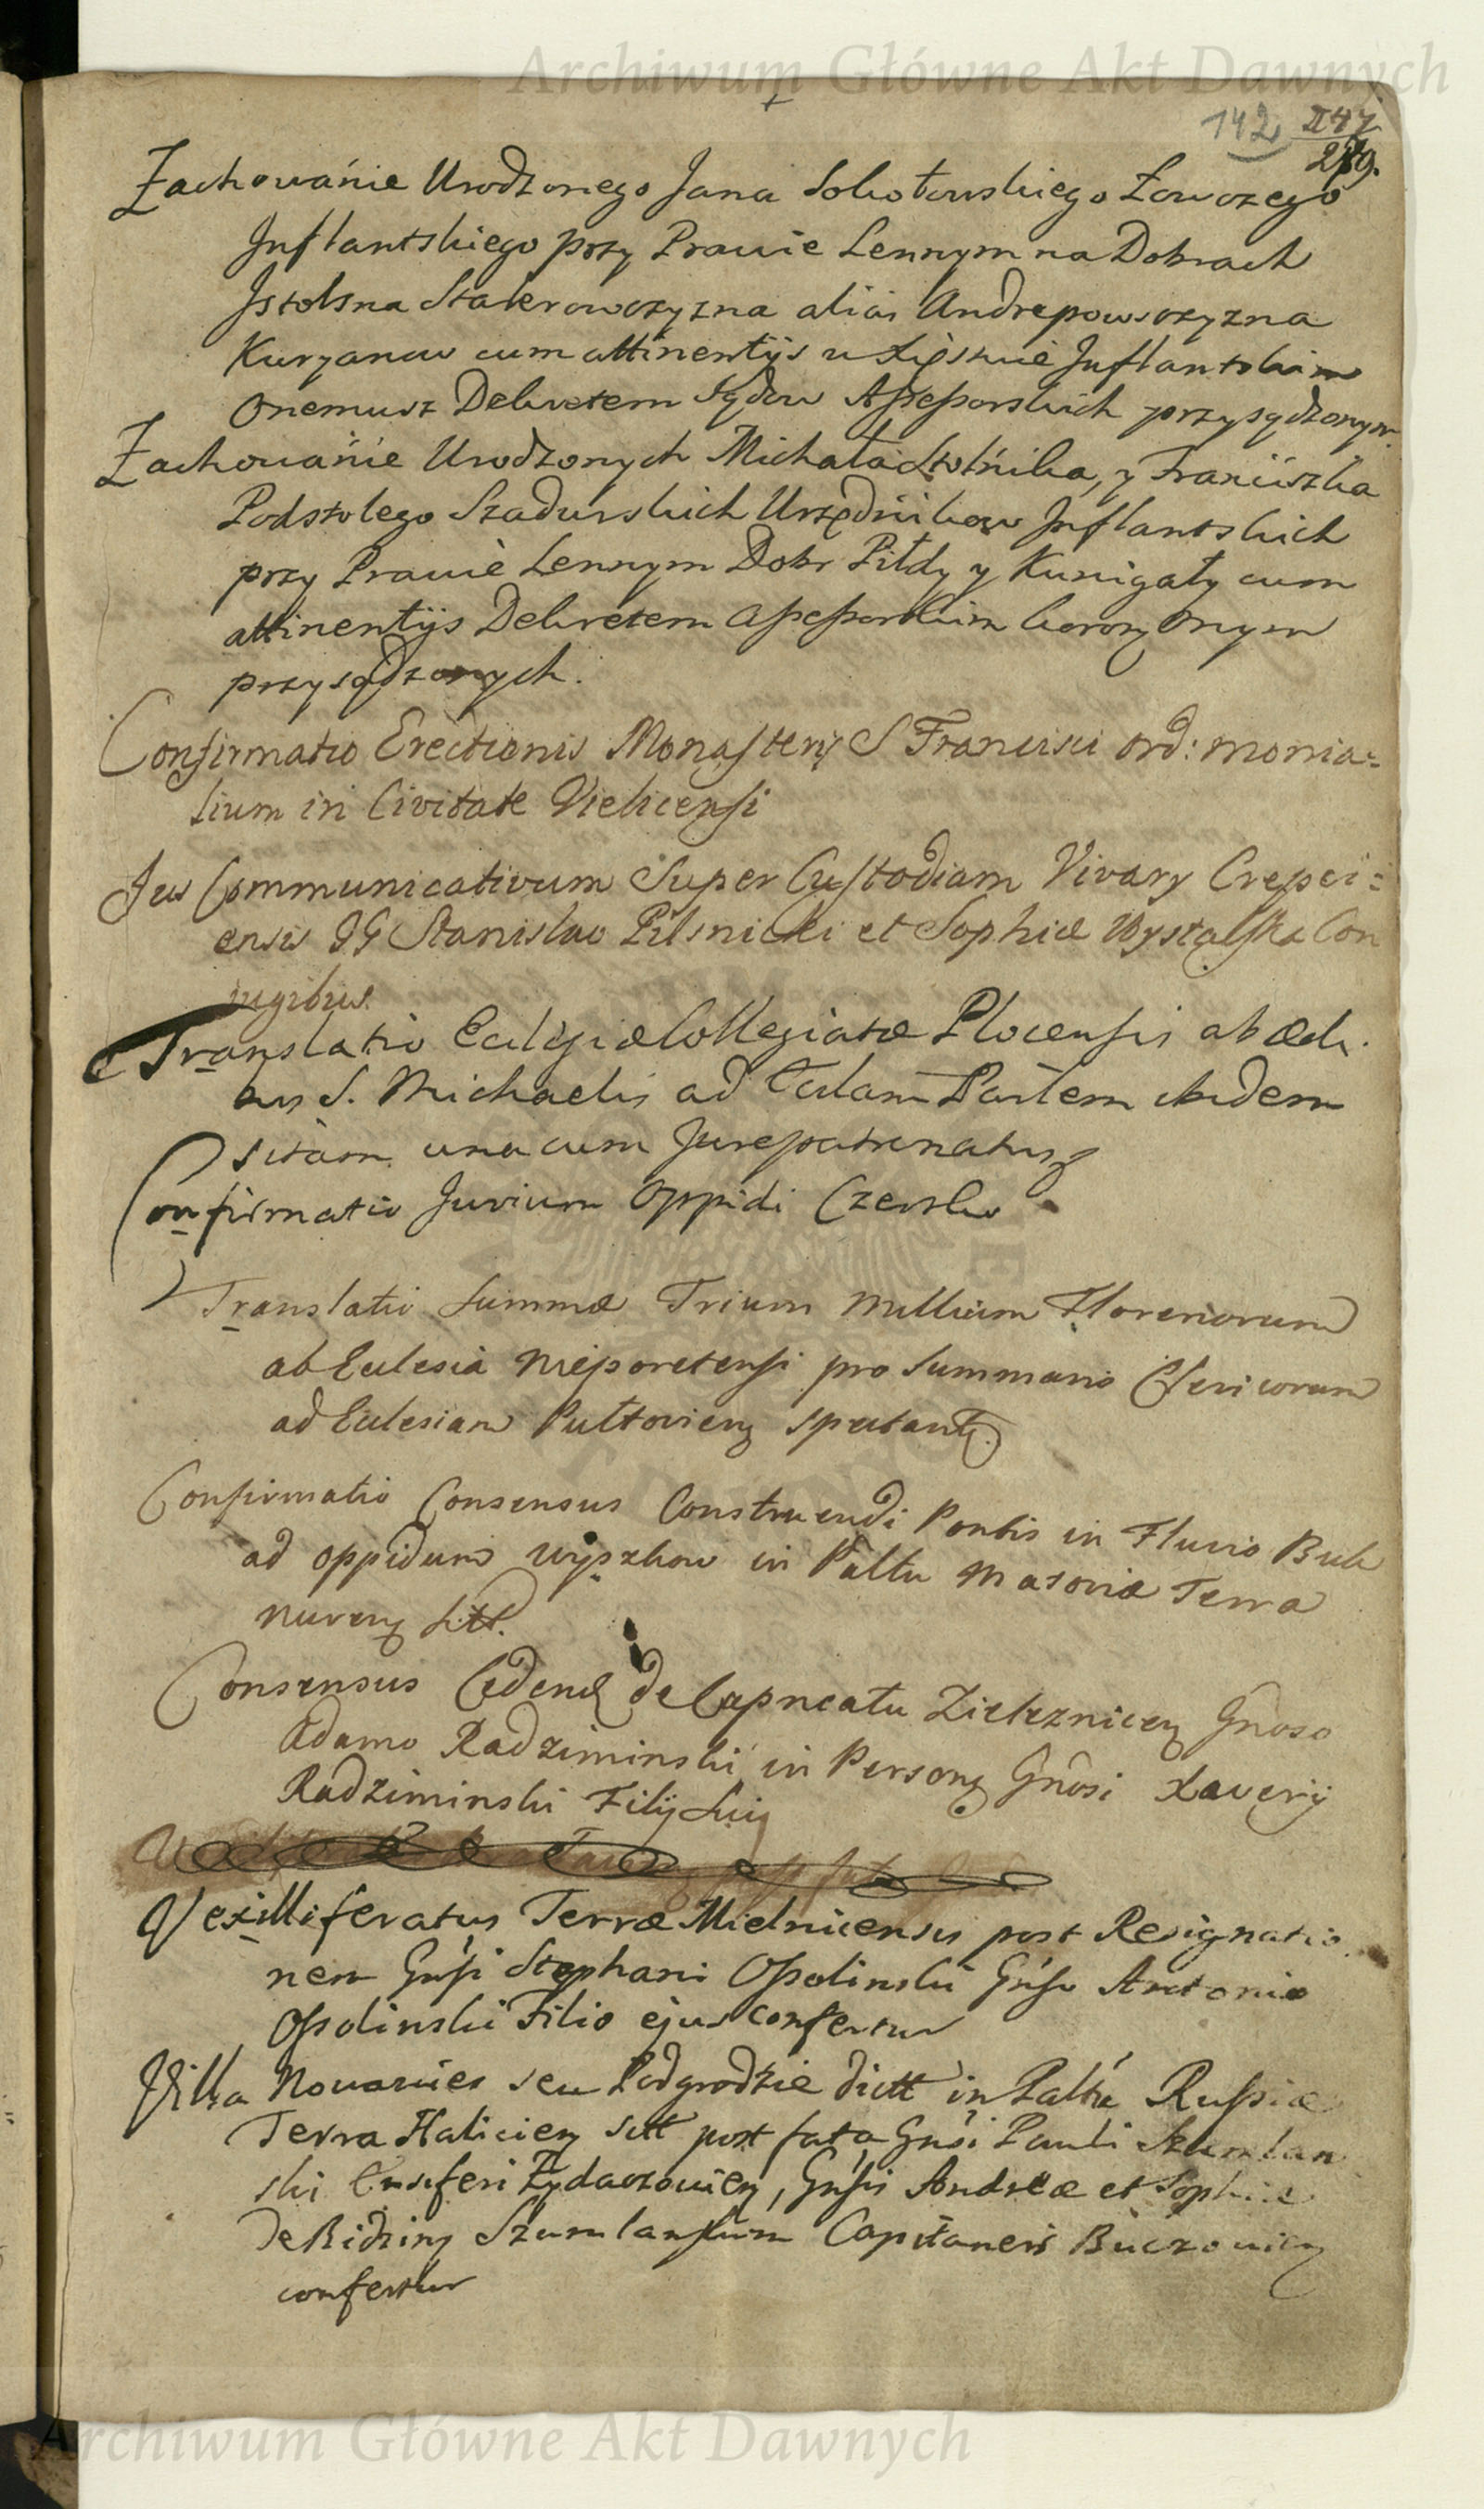 Archiwum Główne Akt Dawnych
142 247
249.
Zachowánie Urodzonego Jana Sokołowskiego Łowczego
Inflantskiego przy Prawie Lennym na Dobrach
Istolsna Stakerowczyzna alias Andrepowszczyzna
Kurzanow cum attinentijs w Xięstwie Inflantskim
Onemusz Dekretem Sądow Assessorskich przysądzonym
Zachowánie Urodzonych Michała Stolnika, y Franciszka
Podstolego Szadurskich Urzędnikow Inflantskich
przy Prawie Lennym Dobr Pildy y Kunigaty cum
attinentijs Dekretem Assessorskim onym
przysądzonych.
Confirmatio Erectionis Monasterij S Francisci Ord: monia=
lium in Civitate Vielicensi
Jus Communicativum Super Custodiam Vivary Crepici=
ensis GG Stanislao Pilsnicki et Sophiæ Wystalska Con
iugibus.
Translatio Ecclesiæ Collegiatæ Plocensis ab ædi
bus S. Michaelis ad Eccлam Partem ibidem
sitam una cum Jurepatronatus
Confirmatio Jurium Oppidi Czersko
Translatio Summæ Trium Millium Florenorum
ab Eclesia Nieporetensi pro Summario Clericorum
ad Eclesiam Pultovien spectant.
Confirmatio Consensus Construendi Pontis in Fluvio Buk
ad oppidum Wyszkow in Palttu Masoviæ Terra
Nuren sitt.
Consensus Cedend de Capneatu Zieleznicen Gnoso
Adamo Radziminski in Person Gnosi Xaverij
Radziminski Filij Sui
Vexilliferatus Terræ Mielnicensis post Resignatio
nem Gnsi Stephani Ossolinski Gnso Antonio
Ossolinski Filio ejus confertur
Villa Nowawies seu Podgrodzie dictt in Palttu Russiæ
Terra Halicien sitt post fata Gnsi Pauli Szumlan
ski Ensiferi Zydaczowien, Gnsis Andreæ et Sophiæ
de Bidziny Szumlanskim Capitaneis Buczowien
confertur
Archiwum Główne Akt Dawnych